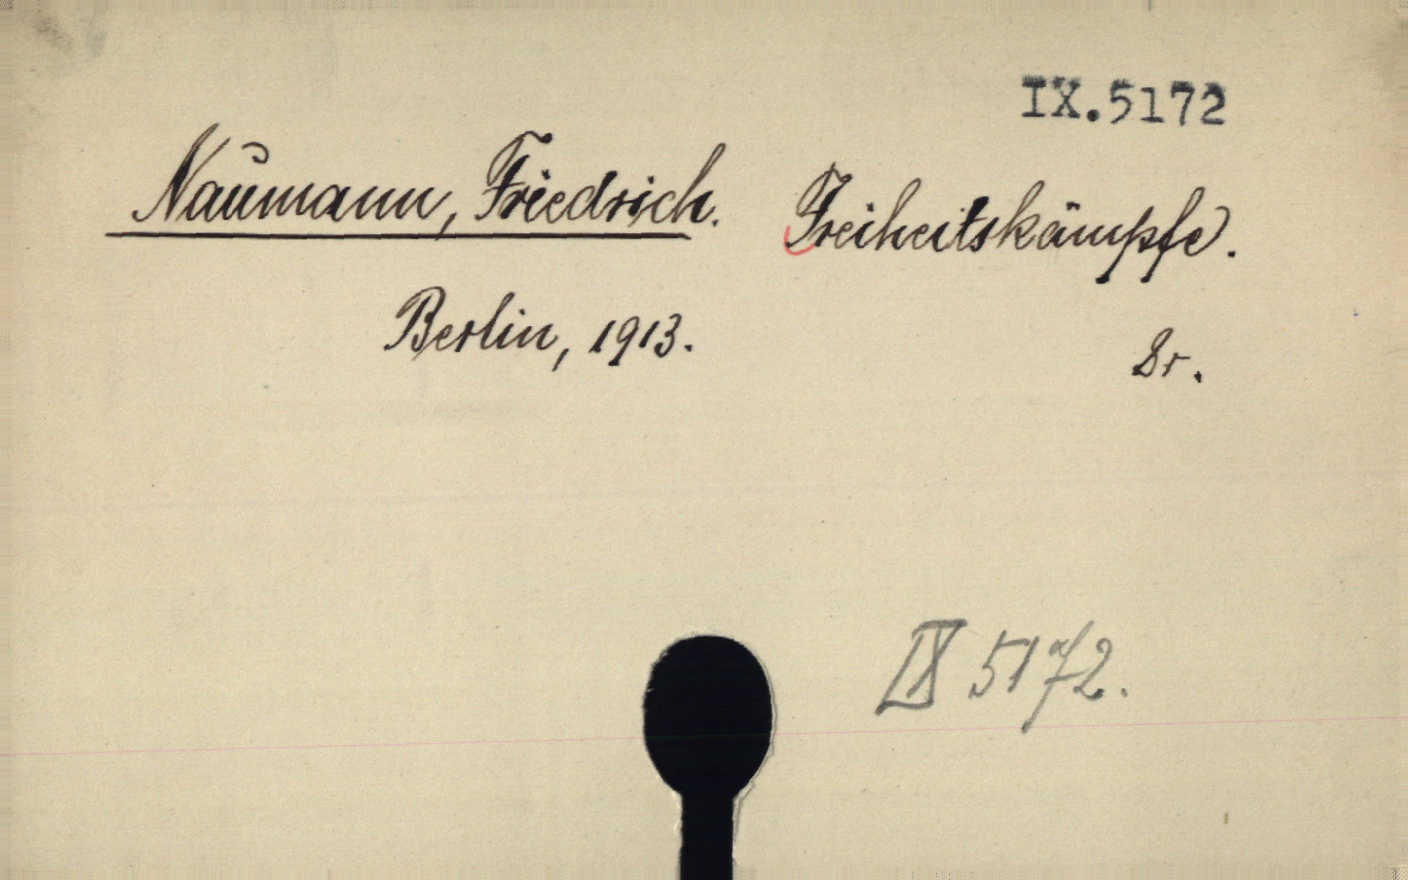 IX.5172
Naumann, Friedrich. Freiheitskämpfe.
Berlin, 1913.
8r.
IX 5172.